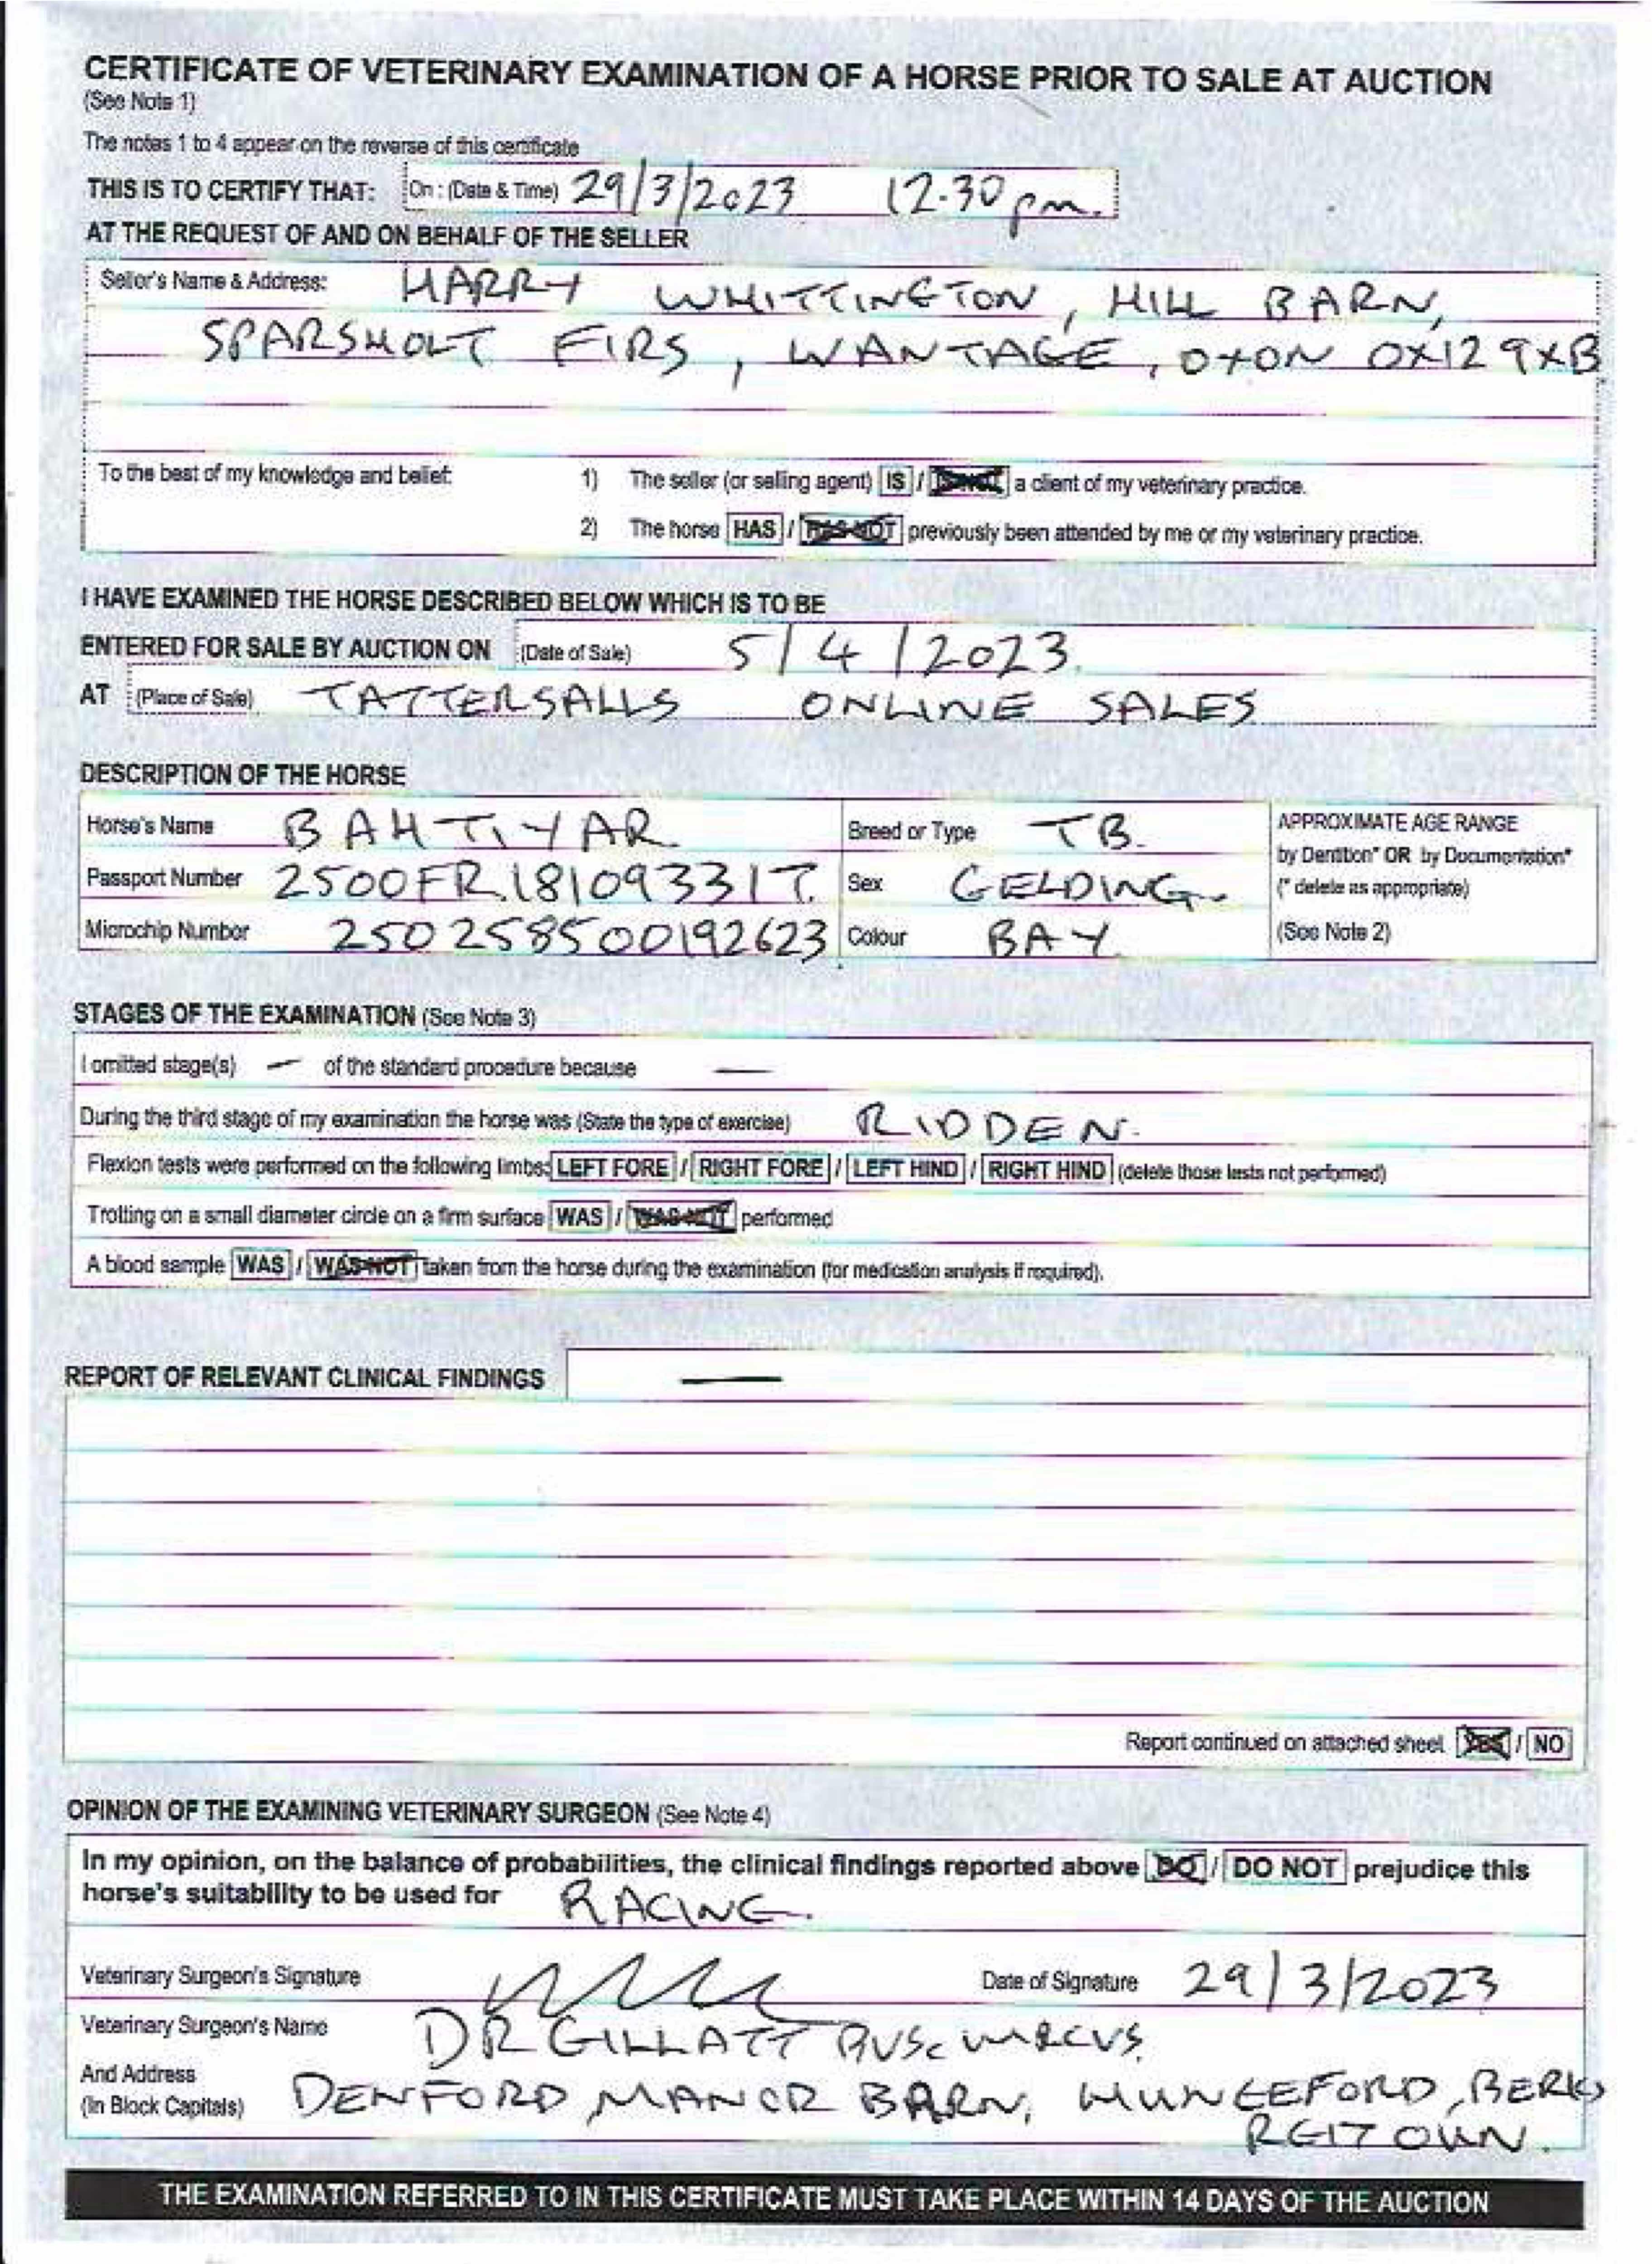 CERTIFICATE OF VETERINARY EXAMINATION OF A HORSE PRIOR TO SALE AT AUCTION
(See Note 1)
The notes 1 to 4 appear on the reverse of this certificate
THIS IS TO CERTIFY THAT: On : (Date & Time) 29/3/2023 12.30 pm.
AT THE REQUEST OF AND ON BEHALF OF THE SELLER
Seller's Name & Address: HARRY WHITTINGTON, HILL BARN,
SPARSHOLT FIRS, WANTAGE, OXON OX12 9XB
To the best of my knowledge and belief: 1) The seller (or selling agent) IS / IS NOT a client of my veterinary practice.
2) The horse HAS / HAS NOT previously been attended by me or my veterinary practice.
I HAVE EXAMINED THE HORSE DESCRIBED BELOW WHICH IS TO BE
ENTERED FOR SALE BY AUCTION ON (Date of Sale) 5/4/2023.
AT (Place of Sale) TATTERSALLS ONLINE SALES
DESCRIPTION OF THE HORSE
Horse's Name BAHTIYAR Breed or Type TB. APPROXIMATE AGE RANGE
by Dentition* OR by Documentation*
Passport Number 2500FR.18109331T. Sex GELDING. (* delete as appropriate)
Microchip Number 250258500192623 Colour BAY. (See Note 2)
STAGES OF THE EXAMINATION (See Note 3)
I omitted stage(s) — of the standard procedure because —
During the third stage of my examination the horse was (State the type of exercise) RIDDEN.
Flexion tests were performed on the following limbs: LEFT FORE / RIGHT FORE / LEFT HIND / RIGHT HIND (delete those tests not performed)
Trotting on a small diameter circle on a firm surface WAS / WAS NOT performed
A blood sample WAS / WAS NOT taken from the horse during the examination (for medication analysis if required).
REPORT OF RELEVANT CLINICAL FINDINGS —
Report continued on attached sheet YES / NO
OPINION OF THE EXAMINING VETERINARY SURGEON (See Note 4)
In my opinion, on the balance of probabilities, the clinical findings reported above DO / DO NOT prejudice this
horse's suitability to be used for RACING.
Veterinary Surgeon's Signature Date of Signature 29/3/2023
Veterinary Surgeon's Name DR GILLATT BVSc MRCVS.
And Address
(In Block Capitals) DENFORD MANOR BARN, HUNGERFORD, BERKS
RG17 0UN.
THE EXAMINATION REFERRED TO IN THIS CERTIFICATE MUST TAKE PLACE WITHIN 14 DAYS OF THE AUCTION